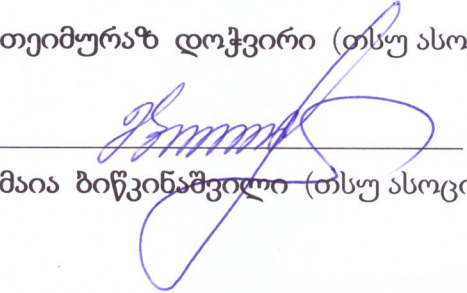 თეიმურაზ დოჭვირი (თსუ ასო
მაია ბიწკინაშვილი (თსუ ასოცი